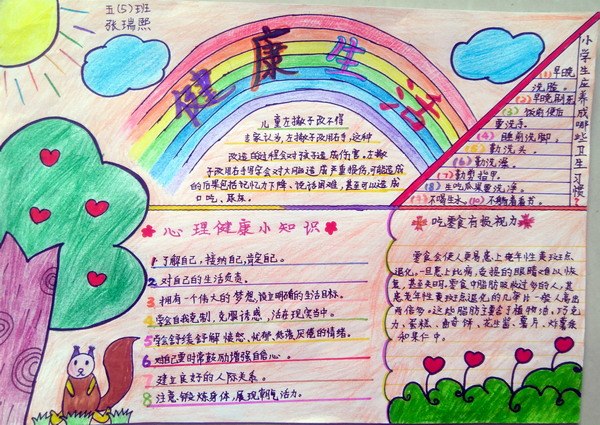 五(5)班
张瑞熙
健康生活
儿童左撇子改不得
专家认为,左撇子改用右手,这种
改造的过程会对孩子造成伤害。左撇
子改用右手写字会对大脑造成严重损伤,可能造成
的后果包括记忆力下降、说话困难,甚至可以造成
口吃、尿床。
小学生应养成哪些卫生习惯?
(1)早晚
洗脸。
(2)早晚刷牙
(3)饭前便后
要洗手。
(4)睡前洗脚。
(5)勤洗头。
(6)勤洗澡。
(7)勤剪指甲。
(8)生吃瓜果要洗净。
(9)不喝生水。(10)不躺着看书。
心理健康小知识
1 了解自己,接纳自己,肯定自己。
2 对自己的生活负责。
3 拥有一个伟大的梦想,设立明确的生活目标。
4 学会自我克制,克服诱惑,活在现实当中。
5 学会舒缓舒解愤怒、忧郁、悲哀厌倦的情绪。
6 对自己要时常鼓励增强自信心。
7 建立良好的人际关系。
8 注意锻炼身体,展现朝气活力。
吃零食有损视力
零食会使人更易患上老年性黄斑点
退化。一旦患上此病,受损的眼睛难以恢
复,甚至失明。零食中脂肪吸收过多的人,其
患老年性黄斑点退化的几率比一般人高出
两倍多。这些脂肪主要含于植物油、巧克
力、蛋糕、曲奇饼、花生酱、薯片、炸薯条
和果仁中。